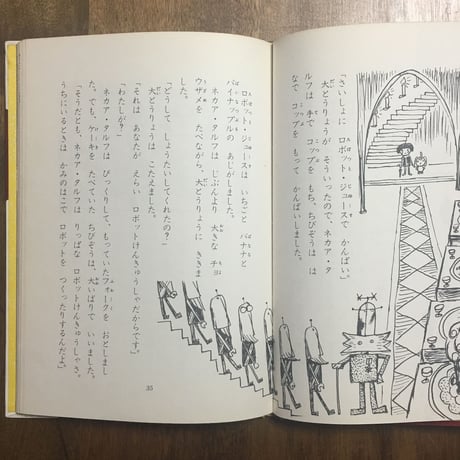 「さいしょに ロボット・ジュースで かんぱい」
大とうりょうが そういったので、ネカア・タ
ルフは 手で コップを もち、ちびぞうは は
なで コップを もって かんぱいしました。
ロボット・ジュースは いちごと バナナと
パイナップルの あじがしました。
ネカア・タルフは じぶんより 大きな チョ
ウザメを たべながら、大とうりょうに ききま
した。
「どうして しょうたいしてくれたの?」
大とうりょうは こたえました。
「それは あなたが えらい ロボットけんきゅうしゃだからです。」
「わたしが?」
ネカア・タルフは びっくりして、もっていたフォークを おとしまし
た。でも、ケーキを たべていた ちびぞうは、大いばりで いいました。
「そうだとも。ネカア・タルフは りっぱな ロボットけんきゅうしゃさ。
うちにいるときは かみのはこで ロボットを つくったりするんだよ。」
35